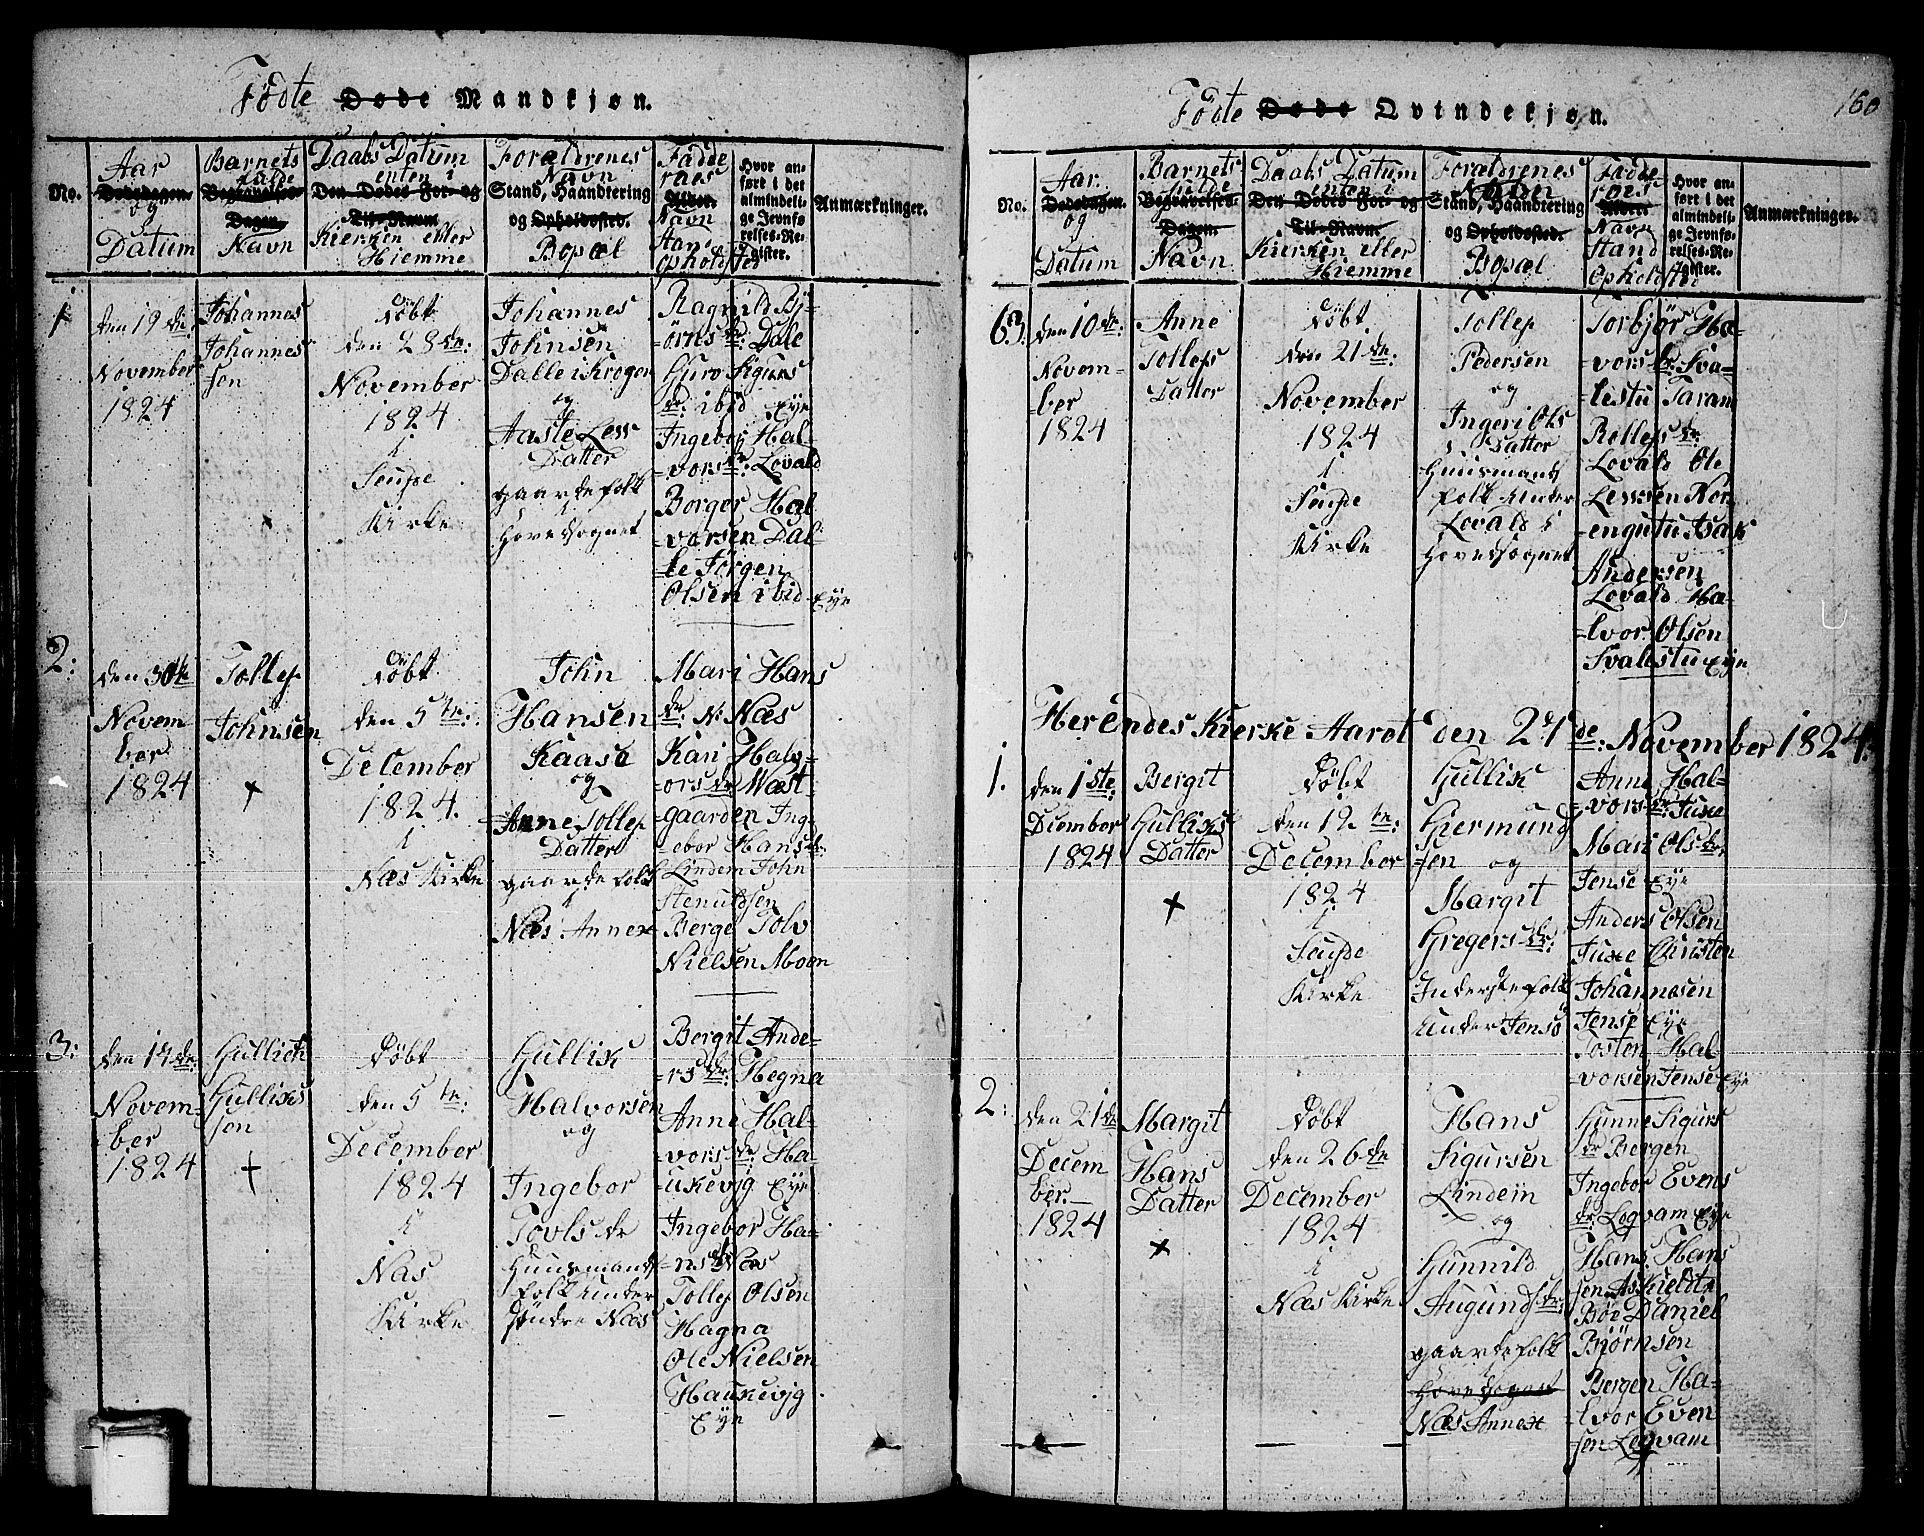 Födte Døde Mandkjøn.
No.
Aar
Dødsdagen.
og
Datum
Barnets
fulde
Begravelses-
Dagen.
Navn
Daabs Datum
enten i
Den Dødes For- og
Til-Navn.
Kierken eller
Hiemme
Forældrenes
Navn
Stand, Haandtering
og Opholdssted.
Bopæl
Fadde
raes
Alder.
Navn
Stand
Opholdsted
Hvor an-
ført i det
almindeli-
ge Jevnfø
relses-Re-
gister.
Anmærkninger.
1
den 19de
November
1824
Johannes
Johannes
sen
Döbt
den 28de:
November
1824
i
Seufde
Kirke
Johannes
Johnsen
Dalle i Kroger
og
Aaste Lew
Datter
gaardefolk
i
Hovedsognet
Ragnild Bj-
örns dr: Dale
Guro Sigurs
dr: ibid Eye
Ingebor Hal-
=vors dr: Lovald
Borger Hal
=vorsen Dal-
=le Jörgen
Olsen ibid Eye
2:
den 30te
Novem
ber
1824
Tollef
Johnsen
+
Döbt
den 5te:
December
1824.
i
Næs Kirke
John
Hansen
Kaasa
og
Anne Tollef
Datter
gaardefolk
i
Næs Annex
Mari Hans
dr: N: Næs
Kari Halv-
=ors dr Næst
=gaarden Ing-
=ebor Hans dr:
Lindem John
Stenulfsen
Berge Tolv
Nielsen Moen
3:
den 14de
Novem-
ber
1824
Gullich
Gulliks
sen
+
Döbt
den 5te:
December
1824
i
Næs
Kirke
Gullik
Halvorsen
og
Ingebor
Tovls dr
Huusmands
folk under
söndre Næs
Bergit Ande-
=rs dr: Hegna
Anne Hal-
vors dr: Ha-
ukevjg Eye
Ingebor Ha-
=ns dr Næs
Tollef Olsen
Hagna
Ole Nielsen
Haukevjg
Eye
Födte Døde Qvindekjøn.
160
No.
Aar.
Dødsdagen.
og
Datum
Barnets
fulde
Begravelses-
Dagen.
Navn
Daabs Datum
enten i
Den Dødes For- og
Til-Navn.
Kierken eller
Hiemme
Forældrenes
Navn
Stand, Haandtering
og Opholdssted.
Bopæl
Fadde
raes
Alder
Navn
Stand
Opholdsted
Hvor an-
ført i det
almindeli-
ge Jevnfø-
relses-Re-
gister.
Anmærkninger.
63.
den 10de:
Novem-
=ber
1824
Anne
Tollefs
Datter
Döbt
den 21de:
November
1824
i
Seufde
Kirke
Tollef
Pedersen
og
Ingeri Ols
Datter
Huusmands
folk under
Lovald i
Hovedsognet
Torbjör Ha-
=vors dr: Sva-
=lestu Taran
Rollefs dr:
Lovald Ole
Lewsen Nor-
=engutu Isak
Andersen
Lovald Ha-
=lvor Olsen
Svalestu Eye
Herendes Kierke Aaret den 27de: November 1824.
1.
den 1ste:
December
1824
Bergit
Gulliks
Datter
+
Döbt
den 12te:
December
1824
i
Seufde
Kirke
Gullik
Giermund
=sen og
Margit
Gregers dr:
Inderstefolk
under Jensö
Anne Hal-
=vors dr Juxe
Mari Ols dr:
Jense Eye
Anders Olsen
Juxe Christen
Johannesen
Jense Eye
Tosten Hal
=vorsen Jense Eye
2:
den 21de
Decem
ber.
1824
Margit
Hans
Datter
+
Döbt
den 26de
December
1824
i
Næs Kirke
Hans
Sigursen
Lindem
og
Gunnild
Augunds dr:
gaardefolk
Hovedsognet
Næs Annext
Gunne Sigurs
dr Bergen
Ingebor Evens
dr: Legvam Eye
Hans Hans
sen Askieldts
Böe Daniel
Bjørnsen
Bergen Ha-
=lvor Even
=sen Legvam